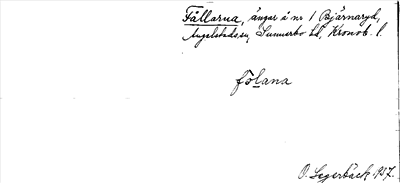 Fållarna, ängar i nr 1 Bjärnaryd,
Angelstads sn, Sunnerbo hd, Kronob. l.
folana
O. Segerbäck 1937.